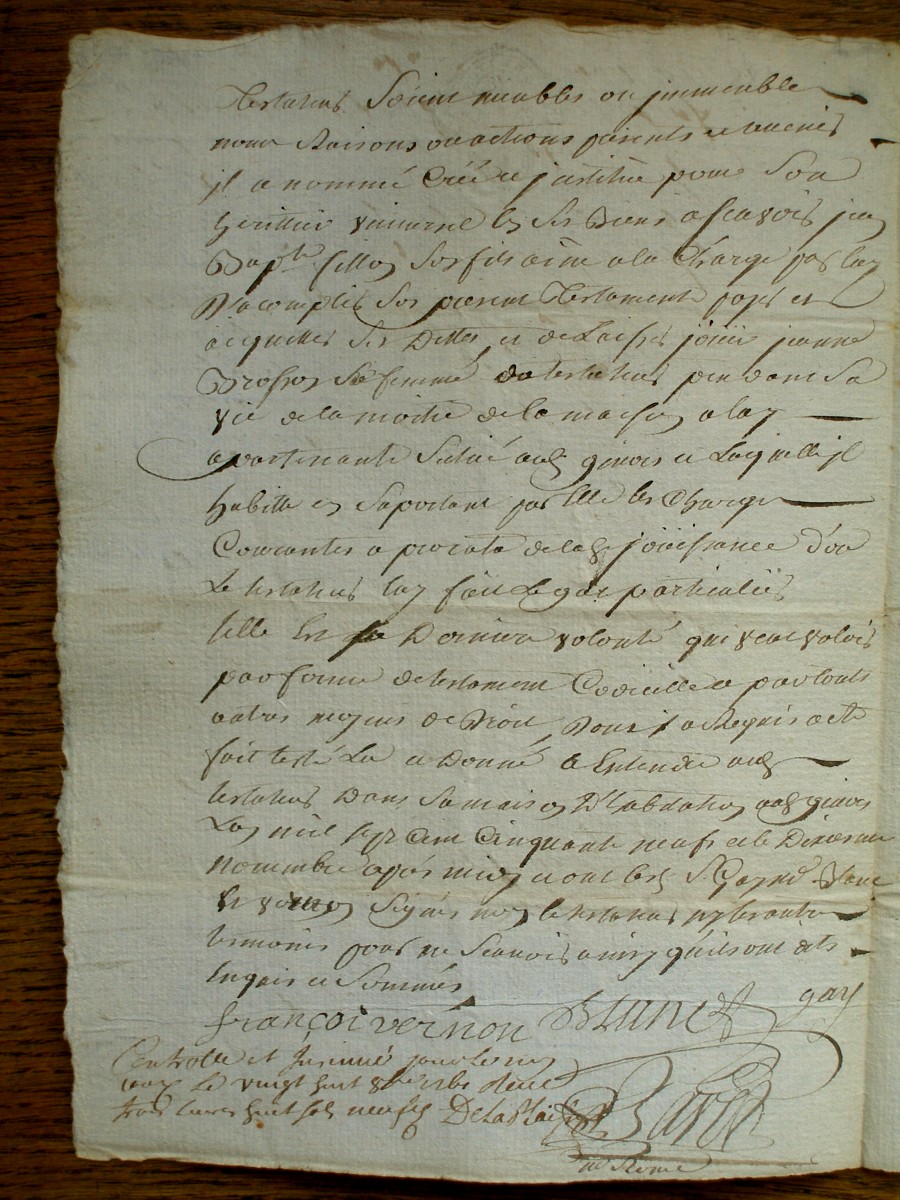 testateur soient meubles ou jmmeuble
noms Raisons ou actions presents et avenir
jl a nommé Créé et jnstitué pour son
heritier vniversel en ses biens a scavoir jean
Bapte fillon son fils aine a la Charge par luy
Dacomplir son present testament payer et
acquitter ses Dettes, et de Laisser joüir jeanne
sa femme du testateur pendant sa
vie de la moitié de la maison a luy
apartenante située aud givors et Laquelle jl
habitte en suportant par Elle les Charges
Courantes a prorata de lad joüissance d'ou
Le testateur luy fait Legat particulier
telle Est sa Derniere volonté qui veut valoir
par forme de testament Codicille et par touts
autres moyens de Droit, Dont jl a Requis acte
fait testé Lu et Donné a Entendre aud
testateur Dans sa maison D'habitation aud givors
Lan mil sept Cent Cinquante neuf et le
novembre apres midy et ont les Sr gay
et vernon signés non le testateur ny les autres
temoins pour ne scavoir ainsy qu'ils ont dit
Enquis et sommés
françoi vernon Blanc gay
Controllé et Insinué
le vingt huit 9bre Reçu
trois livres huit sols neuf d DelaPlaisse